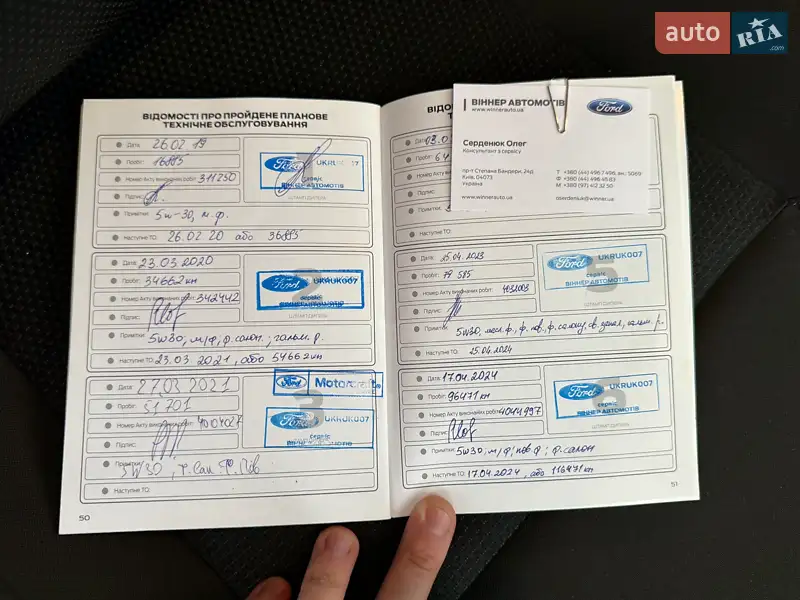 auto RIA .com
ВІДОМОСТІ ПРО ПРОЙДЕНЕ ПЛАНОВЕ
ТЕХНІЧНЕ ОБСЛУГОВУВАННЯ
Дата: 26.02.19
Пробіг: 16885
Номер Акту виконаних робіт: 311250
Підпис:
Примітки: 5w-30, м.ф.
Наступне ТО: 26.02.20 або 36885
Ford UKRUK007
сервіс
ВІННЕР АВТОМОТІВ
ШТАМП ДИЛЕРА
Дата: 23.03.2020
Пробіг: 34662 км
Номер Акту виконаних робіт: 342442
Підпис:
Примітки: 5w30, м/ф, ф. салон.; гальм. р.
Наступне ТО: 23.03 2021, або 54662 км
Ford UKRUK007
сервіс
ВІННЕР АВТОМОТІВ
ШТАМП ДИЛЕРА
Дата: 27.03 2021
Пробіг: 51701
Номер Акту виконаних робіт: 4004027
Підпис:
Примітки: 5W30, Ф. Сан Ф. Пов
Наступне ТО:
Ford Motorcraft
3
Ford UKRUK007
сервіс
ВІННЕР АВТОМОТІВ
50
ВІДО
Дата: 03.0
Пробіг: 64
Номер Акту виконаних
Підпис:
Примітки:
Наступне ТО:
ВІННЕР АВТОМОТІВ
www.winnerauto.ua
Ford
Серденюк Олег
Консультант з сервісу
пр-т Степана Бандери, 24д
Київ, 04073
Україна
T +380 (44) 496 7 496, вн.: 5069
Ф +380 (44) 496 45 63
М +380 (97) 412 32 50
www.winnerauto.ua
oserdeniuk@winner.ua
Дата: 25.04.2023
Пробіг: 79 515
Номер Акту виконаних робіт:
Підпис:
Примітки: 5w30, масл. ф., ф. пов., ф. салону,
Наступне ТО: 25.04.2024
Ford UKRUK007
сервіс
ВІННЕР АВТОМОТІВ
5
ШТАМП ДИЛЕРА
Дата: 17.04.2024
Пробіг: 96471 км
Номер Акту виконаних робіт: 4044997
Підпис:
Примітки: 5w30, м/ф; пов ф; ф. салон
Наступне ТО: 17.04.2024, або 116471 км
Ford UKRUK007
сервіс
ВІННЕР АВТОМОТІВ
6
ШТАМП ДИЛЕРА
51